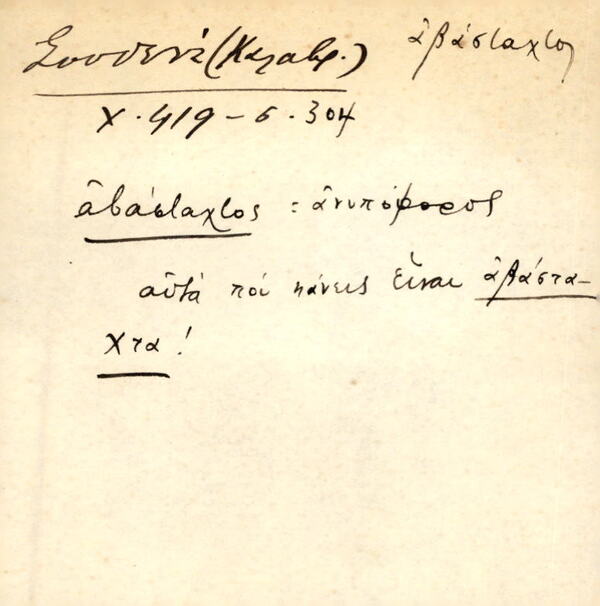 Σουδενά (Καλαβρ.) ἀβάσταχτος
Χ. 419 - σ. 304
ἀβάσταχτος : ἀνυπόφορος
αὐτὰ ποὺ κάνεις εἶναι ἀβάστα-
χτα!